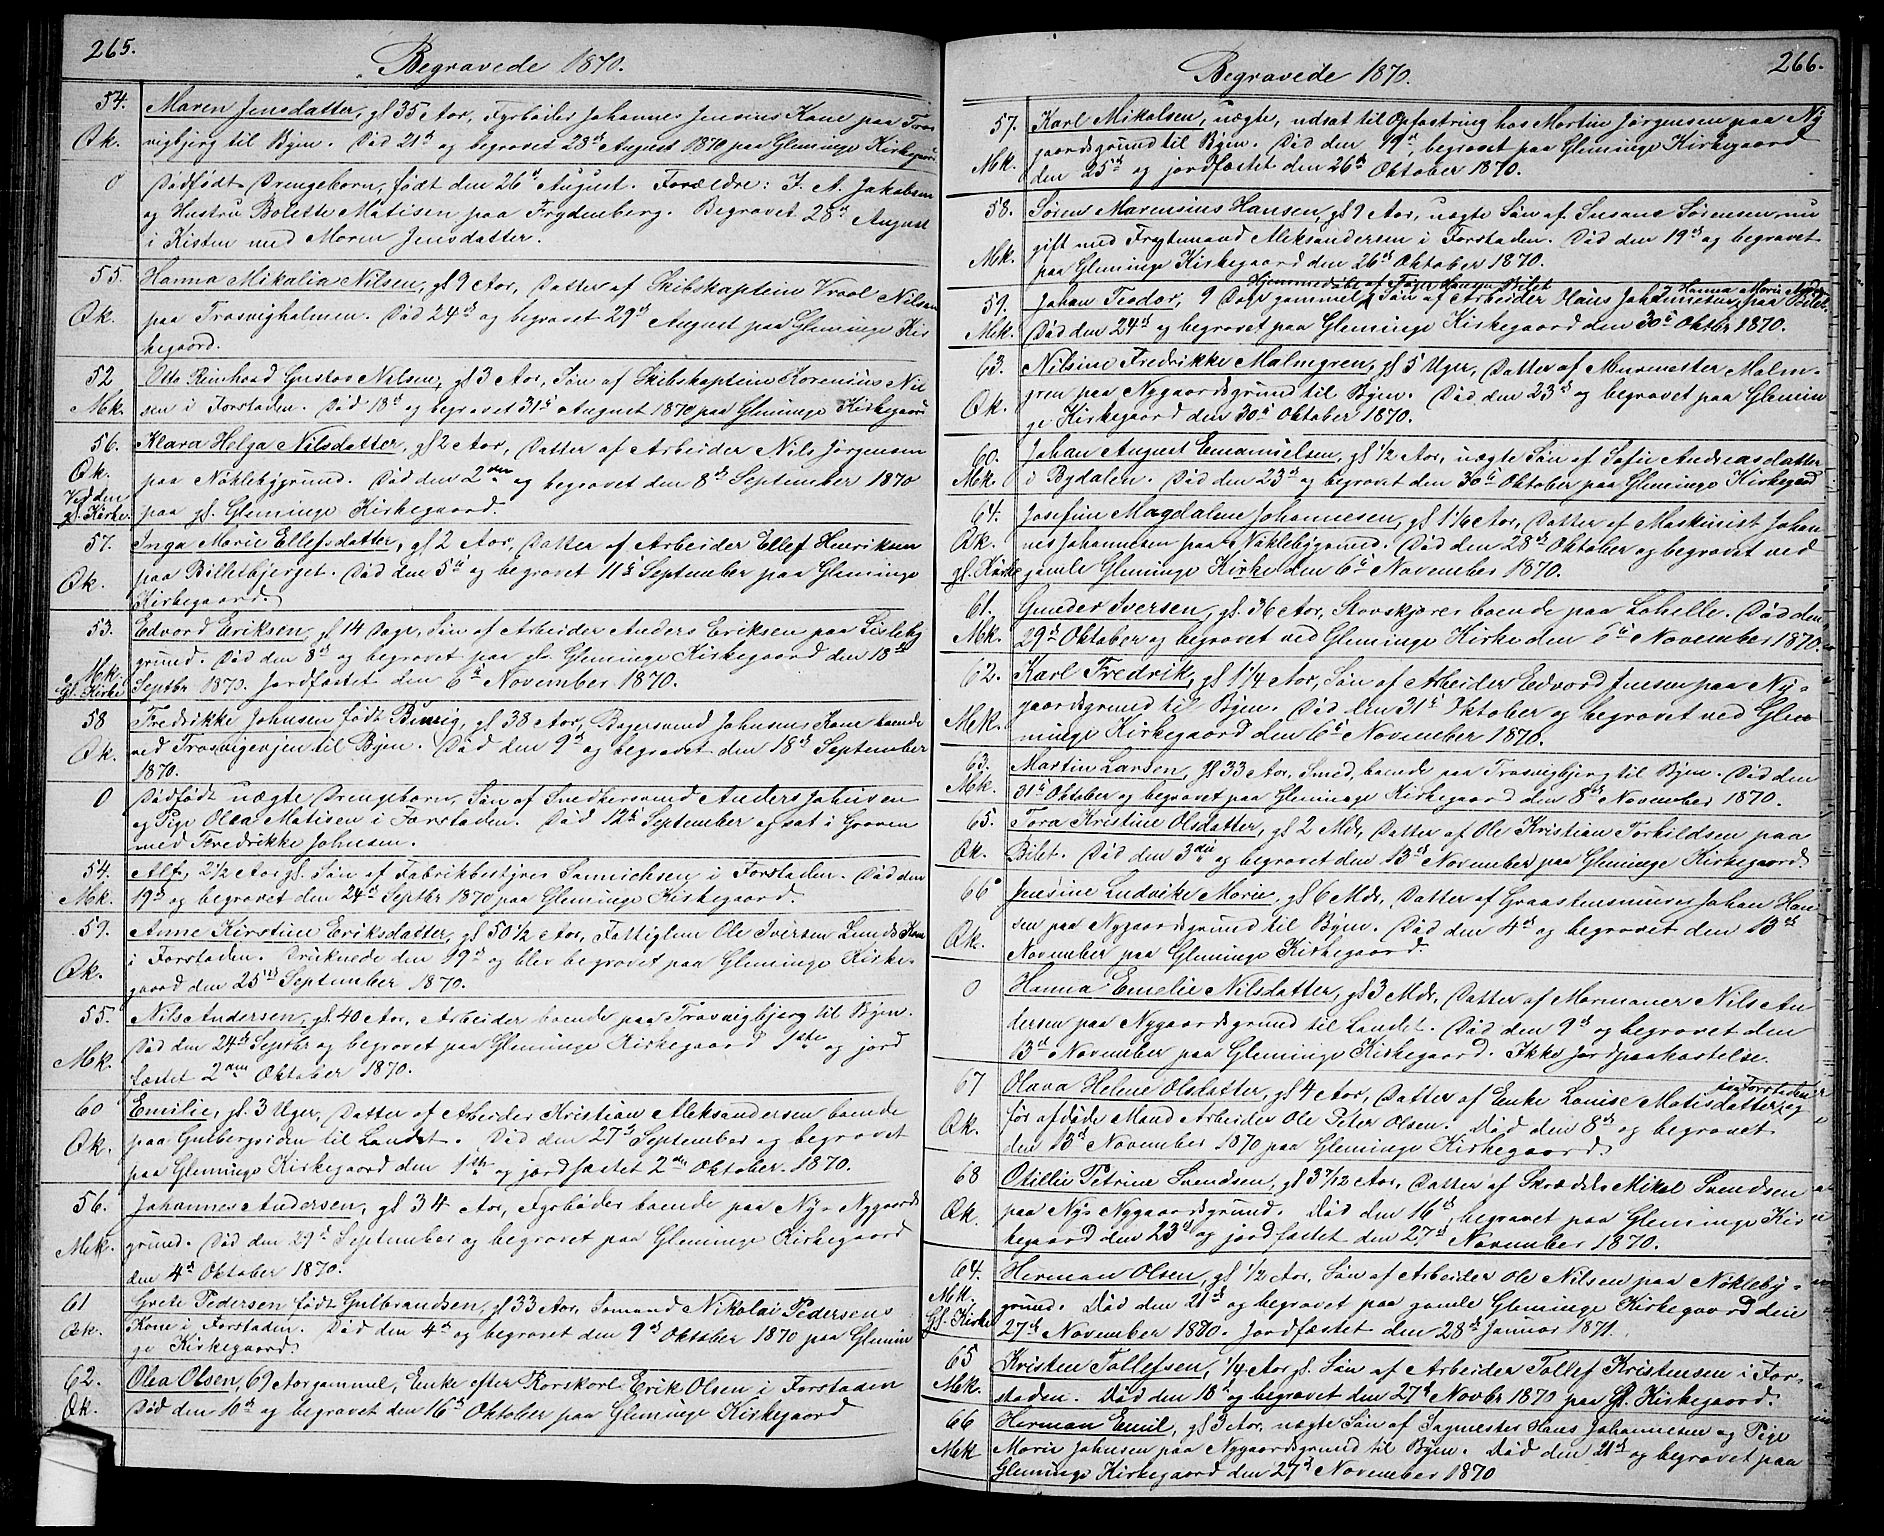 265.
Begravede 1870.
54. Maren Jensdatter, gl 35 Aar, Fyrbøder Johannes Jensens Kone paa Tras
Qk. vigbjerg til Byen. Død 21de og begravet 28de August 1870 paa Gleminge Kirkegaard
0 Dødfødt Drengebarn, født den 26de August. Forældre: J. A. Jakobsen
og Hustru Bolette Matisen paa Frydenberg. Begravet 28de August
i Kisten med Maren Jensdatter.
55. Hanna Mikalia Nilsen, gl 9 Aar, Datter af Skibskaptein Nilsen
Qk. paa Trosvigholmen. Død 24de og begravet 29de August paa Gleminge Kir
kegaard.
52 Otto Reinhard Gustav Nilsen, gl 3 Aar, Søn af Skibskaptein Korenius Nil
Mk. sen i Forstaden. Død 18de og begravet 31te August 1870 paa Gleminge Kirkegaard
56. Klara Helga Nilsdatter, gl 2 Aar, Datter af Arbeider Nils Jørgensen
Qk. paa Nøklebygrund. Død den 2den og begravet den 8de September 1870
Ved den gl. Kirke. paa gl. Gleminge Kirkegaard.
57. Inga Marie Ellefsdatter, gl 2 Aar, Datter af Arbeider Ellef Henriksen
Qk. paa Billetbjerget. Død den 5te og begravet 11te September paa Gleminge
Kirkegaard.
53. Edvard Eriksen, gl 14 Dage, Søn af Arbeider Anders Eriksen paa Lisleby
Mk. grund. Død den 8de og begravet paa gl. Gleminge Kirkegaard den 18de
Gl. Kirke Septbr 1870. Jordfæstet den 6te November 1870.
58 Fredrikke Johnsen født Binzig, gl 38 Aar, Bagersvend Johnsens Kone boende
Qk. ved Trosvigveien til Byen. Død den 9de og begravet den 18de September
1870.
0 Dødfødt uægte Drengebarn, Søn af Snedkersvend Anders Johnsen
og Pige Olea Matisen i Forstaden. Død 12te September og sat i Graven
med Fredrikke Johnsen.
54. Alf, 2 1/2 Aar gl. Søn af Fabrikbestyrer Samuelsen i Forstaden. Død den
Mk. 19de og begravet den 24de Septbr 1870 paa Gleminge Kirkegaard.
59. Anne Kirstine Eriksdatter, gl 50 1/2 Aar, Fattiglem Ole Iversen Lunds Kone
Qk. i Forstaden. Druknede den 19de og blev begravet paa Gleminge Kirke-
gaard den 25de September 1870.
55. Nils Andersen, gl. 40 Aar, Arbeider boende paa Trosvigbjerg til Byen.
Mk. Død den 24de Septbr og begravet paa Gleminge Kirkegaard 1ste og jord
fæstet 2den Oktober 1870.
60 Emilie, gl. 3 Uger, Datter af Arbeider Kristian Aleksandersen boende
Qk. paa Gulbergsiden til Landet. Død den 27de September og begravet
paa Gleminge Kirkegaard den 1ste og jordfæstet 2den Oktober 1870.
56. Johannes Andersen, gl 34 Aar, Fyrbøder boende paa Ny-Nygaards
Mk. grund. Død den 29de September og begravet paa Gleminge Kirkegaard
den 4de Oktober 1870.
61 Grete Pedersen født Gulbrandsen, gl 33 Aar, Sømand Nikolai Pedersens
Qk. Kone i Forstaden. Død den 4de og begravet den 9de Oktober 1870 paa Glemin
ge Kirkegaard.
62. Olea Olsen, 69 Aar gammel, Enke efter Korskarl Erik Olsen i Forstaden
Qk. Død den 10de og begravet den 16de Oktober paa Gleminge Kirkegaard
266.
Begravede 1870.
57. Karl Mikalsen, uægte, udsat til Opfostring hos Martin Jørgensen paa Ny
Mk. gaardsgrund til Byen. Død den 19de, begravet paa Gleminge Kirkegaard
den 25de og jordfæstet den 26de Oktober 1870.
58. Søren Marensius Hansen, gl 9 Aar, uægte Søn af Susane Sørensen, nu
Mk. gift med Fragtemand Aleksandersen i Forstaden. Død den 19de og begravet
paa Gleminge Kirkegaard den 26de Oktober 1870.
Hjemmedøbt af
59. Johan Teodor, 9 Dage gammel, Søn af Arbeider Hans Johannesen, paa Bilet.
Mk. Død den 24de og begravet paa Gleminge Kirkegaard den 30te Oktbr 1870.
63. Nilsine Fredrikke Malmgren, gl 5 Uger, Datter af Murmester Malm-
Qk. gren paa Nygaardsgrund til Byen. Død den 23de og begravet paa Glemin
ge Kirkegaard den 30te Oktober 1870.
60. Johan August Emanuelsen, gl 1/2 Aar, uægte Søn af Sofie Andreasdatter
Mk. i Bydalen. Død den 23de og begravet den 30te Oktober paa Gleminge Kirkegaard
64. Josefine Magdalene Johannesen, gl 1 1/6 Aar, Datter af Maskinist Johan
Qk. nes Johannesen paa Nøklebygrund. Død den 28de Oktober og begravet ved
gl. Kirke gamle Gleminge Kirke den 6te November 1870.
61. Gunder Iversen, gl. 36 Aar, Stovskjører boende paa Labelle. Død den
Mk. 29de Oktober og begravet ved Gleminge Kirke den 6te November 1870.
62. Karl Fredrik, gl 1 1/4 Aar, Søn af Arbeider Edvard Jensen paa Ny-
Mk. gaardsgrund til Byen. Død den 31te Oktober og begravet ved Gle
minge Kirkegaard den 6te November 1870.
63. Martin Larsen, gl 33 Aar, Smed, boende paa Trosvigbjerg til Byen. Død den
Mk. 31te Oktober og begravet paa Gleminge Kirkegaard den 8de November 1870.
65. Tora Kristine Olsdatter, gl 2 Mdr, Datter af Ole Kristian Torkildsen paa
Qk. Bilet. Død den 3die og begravet den 13de November paa Gleminge Kirkegaard
66 Jensine Ludvike Marie, gl 6 Mdr, Datter af Graastensmurer Johan Han
Qk. sen paa Nygaardsgrund til Byen. Død den 4de og begravet den 13de
November paa Gleminge Kirkegaard.
0 Hanna Emelie Nilsdatter, gl 3 Mdr, Datter af Murmaner Nils An
dersen paa Nygaardsgrund til Landet. Død den 9de og begravet den
13de November paa Gleminge Kirkegaard. Ikke Jordpaakastelse.
67 Olava Helene Olsdatter, gl 4 Aar, Datter af Enke Louise Matisdatter i Forstaden og
Qk. før afdøde Mand Arbeider Ole Peter Olsen. Død den 8de og begravet
den 13de November 1870 paa Gleminge Kirkegaard.
68 Otillie Petrine Svendsen, gl 3 7/12 Aar, Datter af Skrædder Mikal Svendsen
Qk. paa Ny-Nygaardsgrund. Død den 16de, begravet paa Gleminge Kir
kegaard den 23de og jordfæstet den 27de November 1870.
64. Herman Olsen, gl 1/2 Aar, Søn af Arbeider Ole Nilsen paa Nøkleby-
Mk. grund. Død den 21de og begravet paa gamle Gleminge Kirkegaard den
Gl. Kirke 27de November 1870. Jordfæstet den 28de Januar 1871.
65 Kristen Tollefsen, 1/4 Aar gl. Søn af Arbeider Tollef Kristensen i For-
Mk. staden. Død den 18de og begravet den 27de Novbr 1870 paa Gl. Kirkegaard.
66 Herman Emil, gl 3 Aar, uægte Søn af Sagmester Hans Johannesen og Pige
Mk Marie Johnsen paa Nygaardsgrund til Byen. Død den 21de og begravet paa
Gleminge Kirkegaard den 27de November 1870